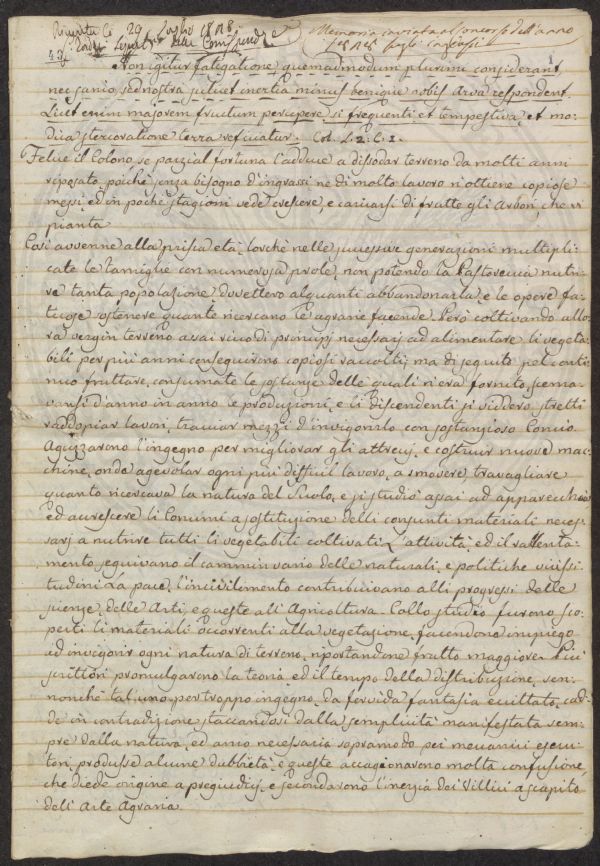 29 Luglio 1818
Memoria inviata al Concorso dell'anno
1818 sugli ingrassi
Non igitur fatigatione quemadmodum plurimi considerant,
nec senio, sed nostra scilicet inertia minus benigne nobis arva respondent.
Licet enim majorem fructum percipere, si frequenti et tempestiva, et mo-
dica stercoratione terra refovatur. Col. L. 2. C. 1.
Felice il Colono se parzial fortuna l'adduce a dissodar terreno da molti anni
riposato, poichè senza bisogno d'ingrassi nè di molto lavoro n'ottiene copiose
messi, ed in poche stagioni vede crescere, e caricarsi di frutte gli Arbori, che vi
pianta.
Così avvenne alla prisca età, lorchè nelle successive generazioni multipli-
cate le famiglie con numerosa prole, non potendo la Pastoreccia nutri-
re tanta popolazione, dovettero alquanti abbandonarla, e le opere fa-
ticose sostenere quante ricercano le agrarie facende. Però coltivando allo-
ra vergin terreno assai ricco di principj necessarj ad alimentare li vegeta-
bili per più anni conseguirono copiosi raccolti; ma di seguito pel conti-
nuo fruttare, consumate le sostanze delle quali n'era fornito, scema-
vansi d'anno in anno le produzioni, e li Discendenti si viddero stretti
raddopiar lavori, tracciar mezzi d'invigorirlo con sostanzioso Concio.
Aguzzarono l'ingegno per migliorar gli attrecj, e costruir nuove mac-
chine, onde agevolar ogni più difficil lavoro, a smovere, travagliare
quanto ricercava la natura del Suolo, e si studiò assai ad apparecchiare
ed accrescere li Concimi a sostituzione delli consunti materiali neces-
sarj a nutrire tutti li vegetabili coltivati. L'attività, ed il rallenta-
mento seguivano il cammin vario delle naturali, e politiche vicissi-
tudini. La pace, l'incivilimento contribuivano alli progressi delle
scienze, delle Arti, e queste all'Agricoltura. Collo studio furono sco-
perti li materiali occorrenti alla vegetazione, facendone impiego
ad invigorir ogni natura di terreno, riportandone frutto maggiore. Più
scrittori promulgarono la teoria ed il tempo della distribuzione, sen-
nonchè taluno per troppo ingegno, da fervida fantasia eccittato, cad-
de in contradizione, staccandosi dalla semplicità manifestata sem-
pre dalla natura, ed anco necessaria sopramodo pei meccanici esecu-
tori, produsse alcune dubbietà, e queste accagionarono molta confusione,
che diede origine a pregiudizj, e secondarono l'inerzia dei Villici a scapito
dell'Arte Agraria.